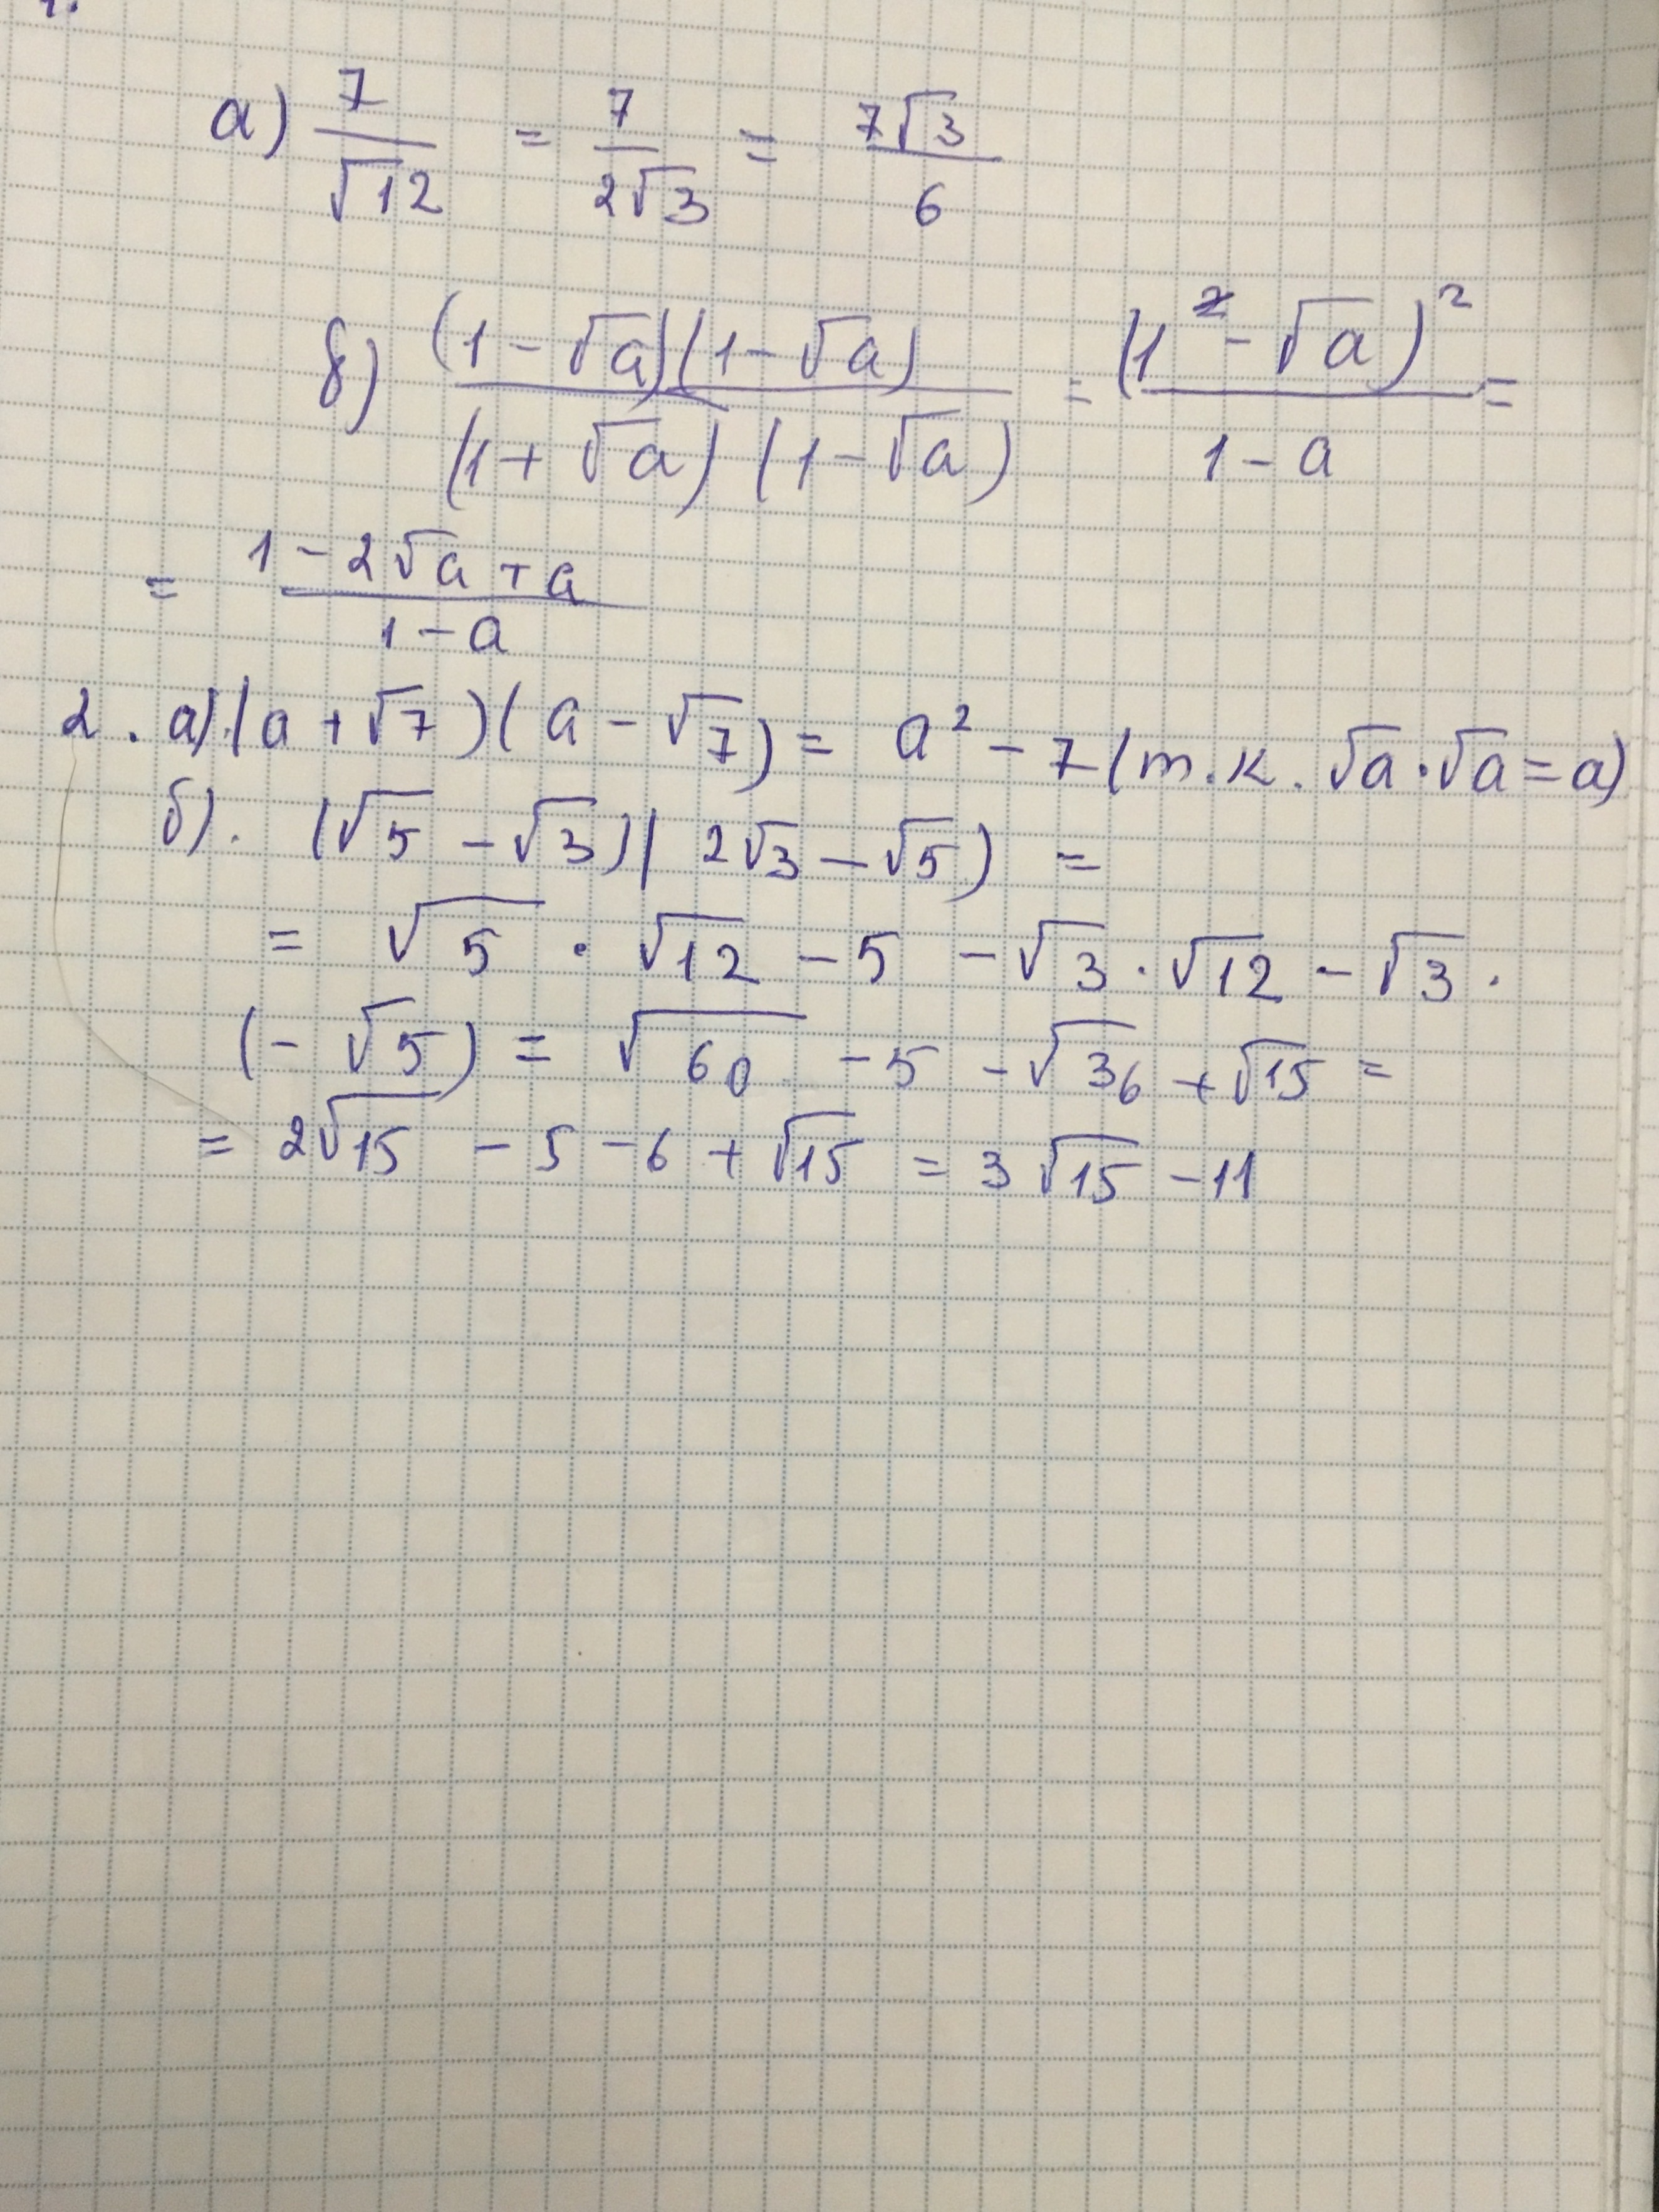 1.
а) 7/√12 = 7/2√3 = 7√3/6
б) (1-√a)(1-√a)/(1+√a)(1-√a) = (1-√a)²/1-a =
= 1-2√a+a/1-a
2. а) (a+√7)(a-√7) = a²-7 (т.к. √a·√a=a)
б). (√5-√3)(2√3-√5) =
= √5·√12-5-√3·√12-√3·
(-√5) = √60-5-√36+√15 =
= 2√15-5-6+√15 = 3√15-11